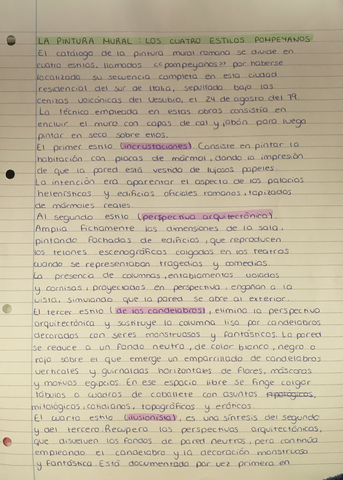 LA PINTURA MURAL: LOS CUATRO ESTILOS POMPEYANOS
El catálogo de la pintura mural romana se divide en
cuatro estilos, llamados <<pompeyanos>> por haberse
localizado su secuencia completa en esta ciudad
residencial del sur de Italia, sepultada bajo las
cenizas volcánicas del Vesubio, el 24 de agosto del 79.
La técnica empleada en estas obras consistía en
enlucir el muro con capas de cal y jabón para luego
pintar en seco sobre ellos.
El primer estilo (incrustaciones). Consiste en pintar la
habitación con placas de mármol, dando la impresión
de que la pared está vestida de lujosos papeles.
La intención era aparentar el aspecto de los palacios
helenísticos y edificios oficiales romanos, tapizados
de mármoles reales.
Al segundo estilo (perspectiva arquitectónica)
Amplia fichamente las dimensiones de la sala,
pintando fachadas de edificios, que reproducen
los telones escenográficos colgados en los teatros
cuando se representaban tragedias y comedias.
La presencia de columnas, entablamentos volados
y cornisas, proyectados en perspectiva, engañan a la
vista, simulando que la pared se abre al exterior.
El tercer estilo (de los candelabros), elimina la perspectiva
arquitectónica y sustituye la columna lisa por candelabros
decorados con seres monstruosos y fantásticos. La pared
se reduce a un fondo neutro, de color blanco, negro o
rojo sobre el que emerge un emparrillado de candelabros
verticales y guirnaldas horizontales de flores, máscaras
y motivos egipcios. En ese espacio libre se finge colgar
tablias o cuadros de caballete con asuntos
mitológicos, cotidianos, topográficos y eróticos.
El cuarto estilo (ilusionista), es una síntesis del segundo
y del tercero. Recupera las perspectivas arquitectónicas,
que disuelven los fondos de pared neutros, pero continúa
empleando el candelabro y la decoración monstruosa
y fantástica. Está documentado por vez primera en